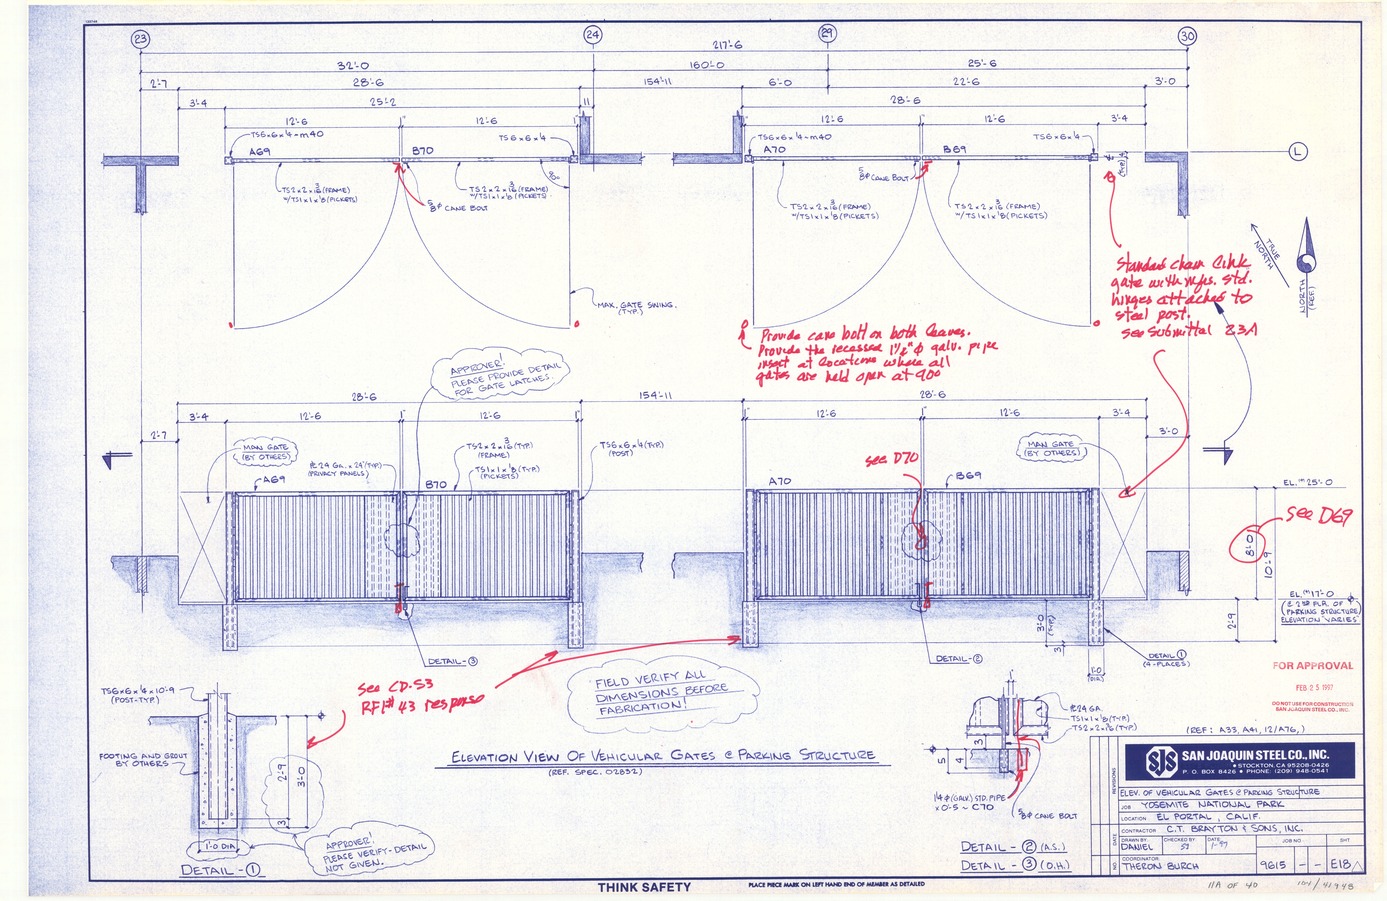 23
24
29
30
217'-6
32'-0
160'-0
25'-6
2'-7
28'-6
154'-11
6'-0
22'-6
3'-0
3'-4
25'-2
11
28'-6
12'-6
1"
12'-6
12'-6
1"
12'-6
3'-4
TS6x6x¼-m40
TS6x6x¼
TS6x6x¼-m40
TS6x6x¼
A69
B70
A70
B69
L
90°
TS2x2x3/16 (FRAME)
W/TS1x1x⅛ (PICKETS)
TS2x2x3/16 (FRAME)
W/TS1x1x⅛ (PICKETS)
⅝φ CANE BOLT
⅝φ CANE BOLT
TS2x2x3/16 (FRAME)
W/TS1x1x⅛ (PICKETS)
TS2x2x3/16 (FRAME)
W/TS1x1x⅛ (PICKETS)
TRUE NORTH
NORTH
(REF.)
Standard chain link
gate with mfgs. std.
hinges attached to
steel post.
see Submittal 23A
MAX. GATE SWING.
(TYP.)
Provide cane bolt on both leaves.
Provide the recessed 1½"φ galv. pipe
insert at locations where all
gates are held open at 90°
APPROVER!
PLEASE PROVIDE DETAIL
FOR GATE LATCHES.
28'-6
154'-11
28'-6
3'-4
12'-6
1"
12'-6
1"
12'-6
1"
12'-6
3'-4
2'-7
3'-0
MAN GATE
(BY OTHERS)
TS2x2x3/16 (TYP.)
(FRAME)
TS6x6x¼ (TYP.)
(POST)
MAN GATE
(BY OTHERS)
PL 24 GA. x 24 (TYP.)
(PRIVACY PANELS)
TS1x1x⅛ (TYP.)
(PICKETS)
see D70
A69
B70
A70
B69
EL. 25'-0
see D69
8'-0
10'-9
EL. 17'-0
(@ 2ND FLR. OF
PARKING STRUCTURE)
ELEVATION VARIES
3'-0
(TYP.)
3
2'-9
DETAIL-③
DETAIL-②
DETAIL ①
(4-PLACES)
1'-0
(DIA)
see CD-53
RFI# 43 response
FIELD VERIFY ALL
DIMENSIONS BEFORE
FABRICATION!
FOR APPROVAL
FEB 25 1997
DO NOT USE FOR CONSTRUCTION
SAN JOAQUIN STEEL CO., INC.
TS6x6x¼x10'-9
(POST-TYP.)
FOOTING AND GROUT
BY OTHERS
2'-9
3'-0
3
1'-0 DIA.
APPROVER!
PLEASE VERIFY-DETAIL
NOT GIVEN.
DETAIL-①
ELEVATION VIEW OF VEHICULAR GATES @ PARKING STRUCTURE
(REF. SPEC. 02832)
PL 24 GA.
TS1x1x⅛ (TYP.)
TS2x2x3/16 (TYP.)
3
5
4
1¼φ (GALV.) STD. PIPE
x 0'-5 ~ C70
⅝φ CANE BOLT
DETAIL-② (A.S.)
DETAIL-③ (O.H.)
(REF: A33, A41, 12/A76,)
SJS
SAN JOAQUIN STEEL CO., INC.
• STOCKTON, CA 95208-0426
P. O. BOX 8426 • PHONE: (209) 948-0541
REVISIONS
DATE
NO.
ELEV. OF VEHICULAR GATES @ PARKING STRUCTURE
JOB YOSEMITE NATIONAL PARK
LOCATION EL PORTAL, CALIF.
CONTRACTOR C.T. BRAYTON & SONS, INC.
DRAWN BY DANIEL
CHECKED BY
DATE 1-97
JOB NO.
SHT
COORDINATOR THERON BURCH
9615
-
-
E18
THINK SAFETY
PLACE PIECE MARK ON LEFT HAND END OF MEMBER AS DETAILED
11A OF 40